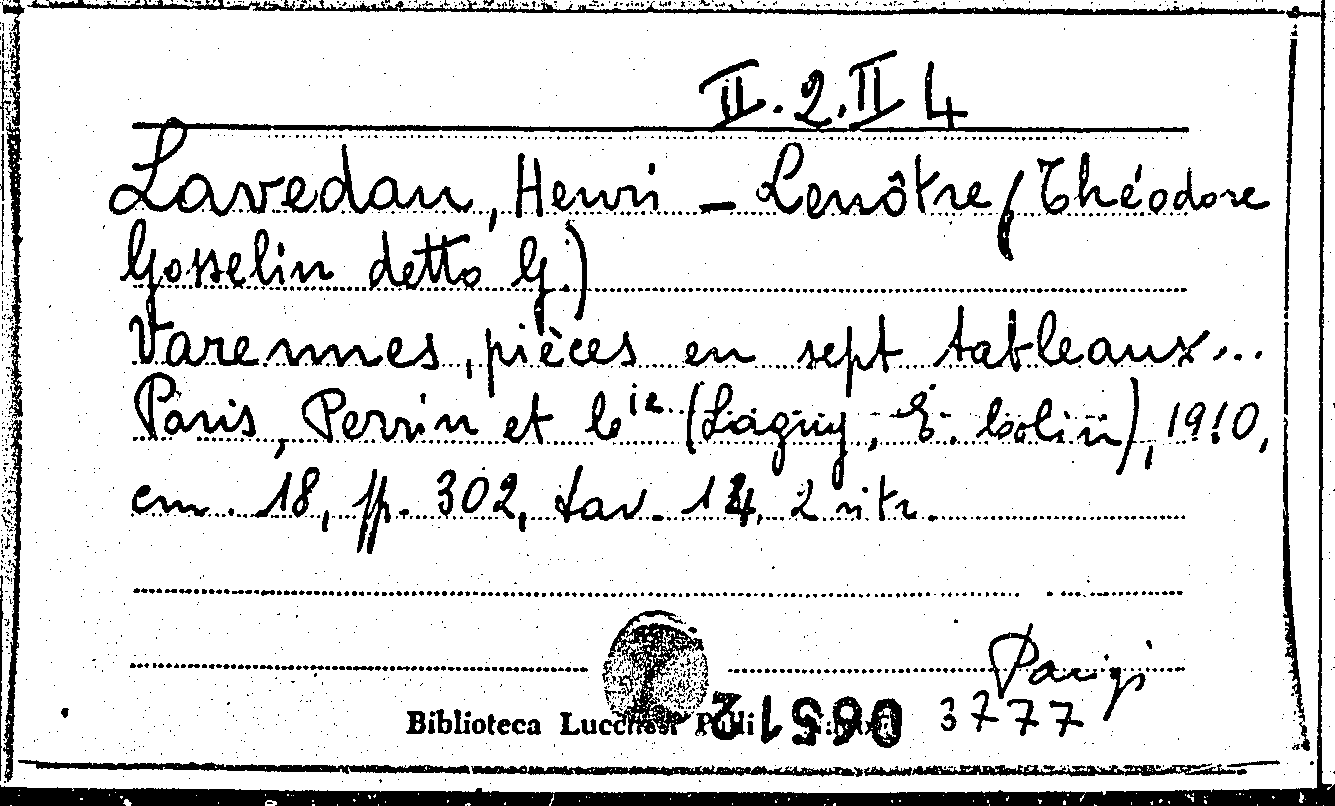 II.2.II 4
Lavedan, Henri - Lenôtre (Théodore
Gosselin detto G.)
Varennes, pièces en sept tableaux...
Paris, Perrin et Cie (Lagny, E. Colin), 1910,
cm. 18, pp. 302, tav. 14, 2 ritr.
Parigi
Biblioteca Lucchesi Palli 3777
06512